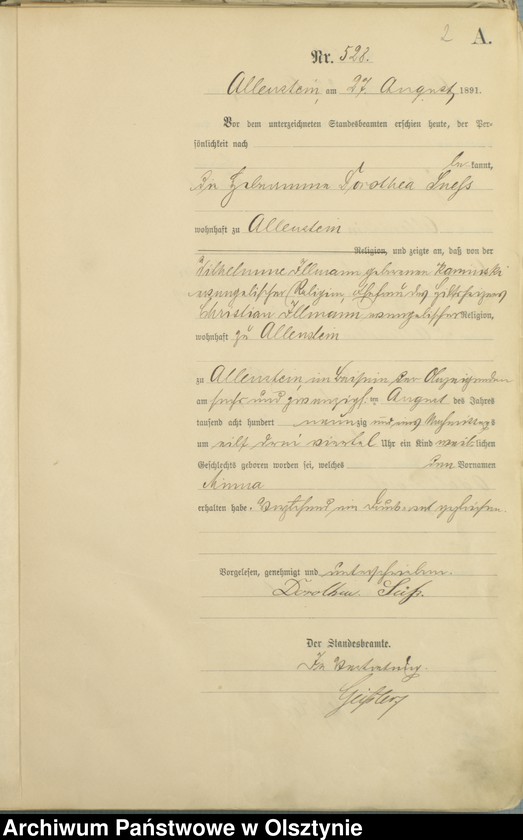 2 A.
Nr. 528.
Allenstein, am 27. August 1891.
Vor dem unterzeichneten Standesbeamten erschien heute, der Per-
sönlichkeit nach
be kannt,
die Hebamme Dorothea Suess
wohnhaft zu Allenstein
Religion, und zeigte an, daß von der
Wilhelmine Illmann geborenen Kaminski
evangelischer Religion, Ehefrau des
Christian Illmann evangelischer Religion,
wohnhaft zu Allenstein
zu Allenstein, im Beisein der Anzeigenden
am sechs und zwanzigsten August des Jahres
tausend acht hundert neunzig und eins Nachmittags
um elf drei viertel Uhr ein Kind weiblichen
Geschlechts geboren worden sei, welches den Vornamen
Minna
erhalten habe. Vorstehend ein Druckwort gestrichen.
Vorgelesen, genehmigt und unterschrieben.
Dorothea Süß.
Der Standesbeamte.
In Vertretung.
Archiwum Państwowe w Olsztynie